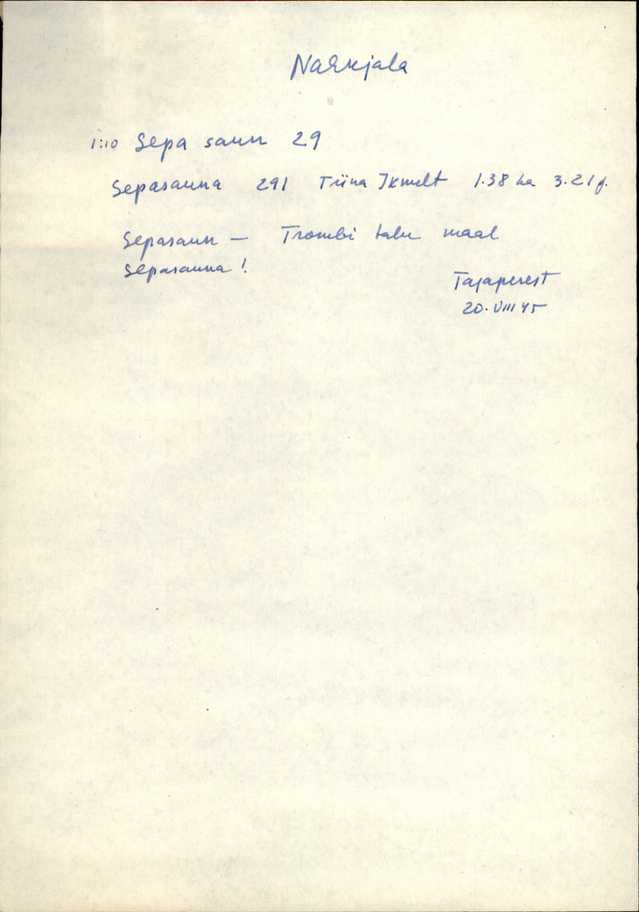 Nahkjala
1:10 Sepa saun 29
Sepasauna 291 Tiina Ikmelt 1.38 ha 3.21 f.
Sepasaun — Trombi talu maal
Sepasauna!
Tajaperest
20. VIII 45